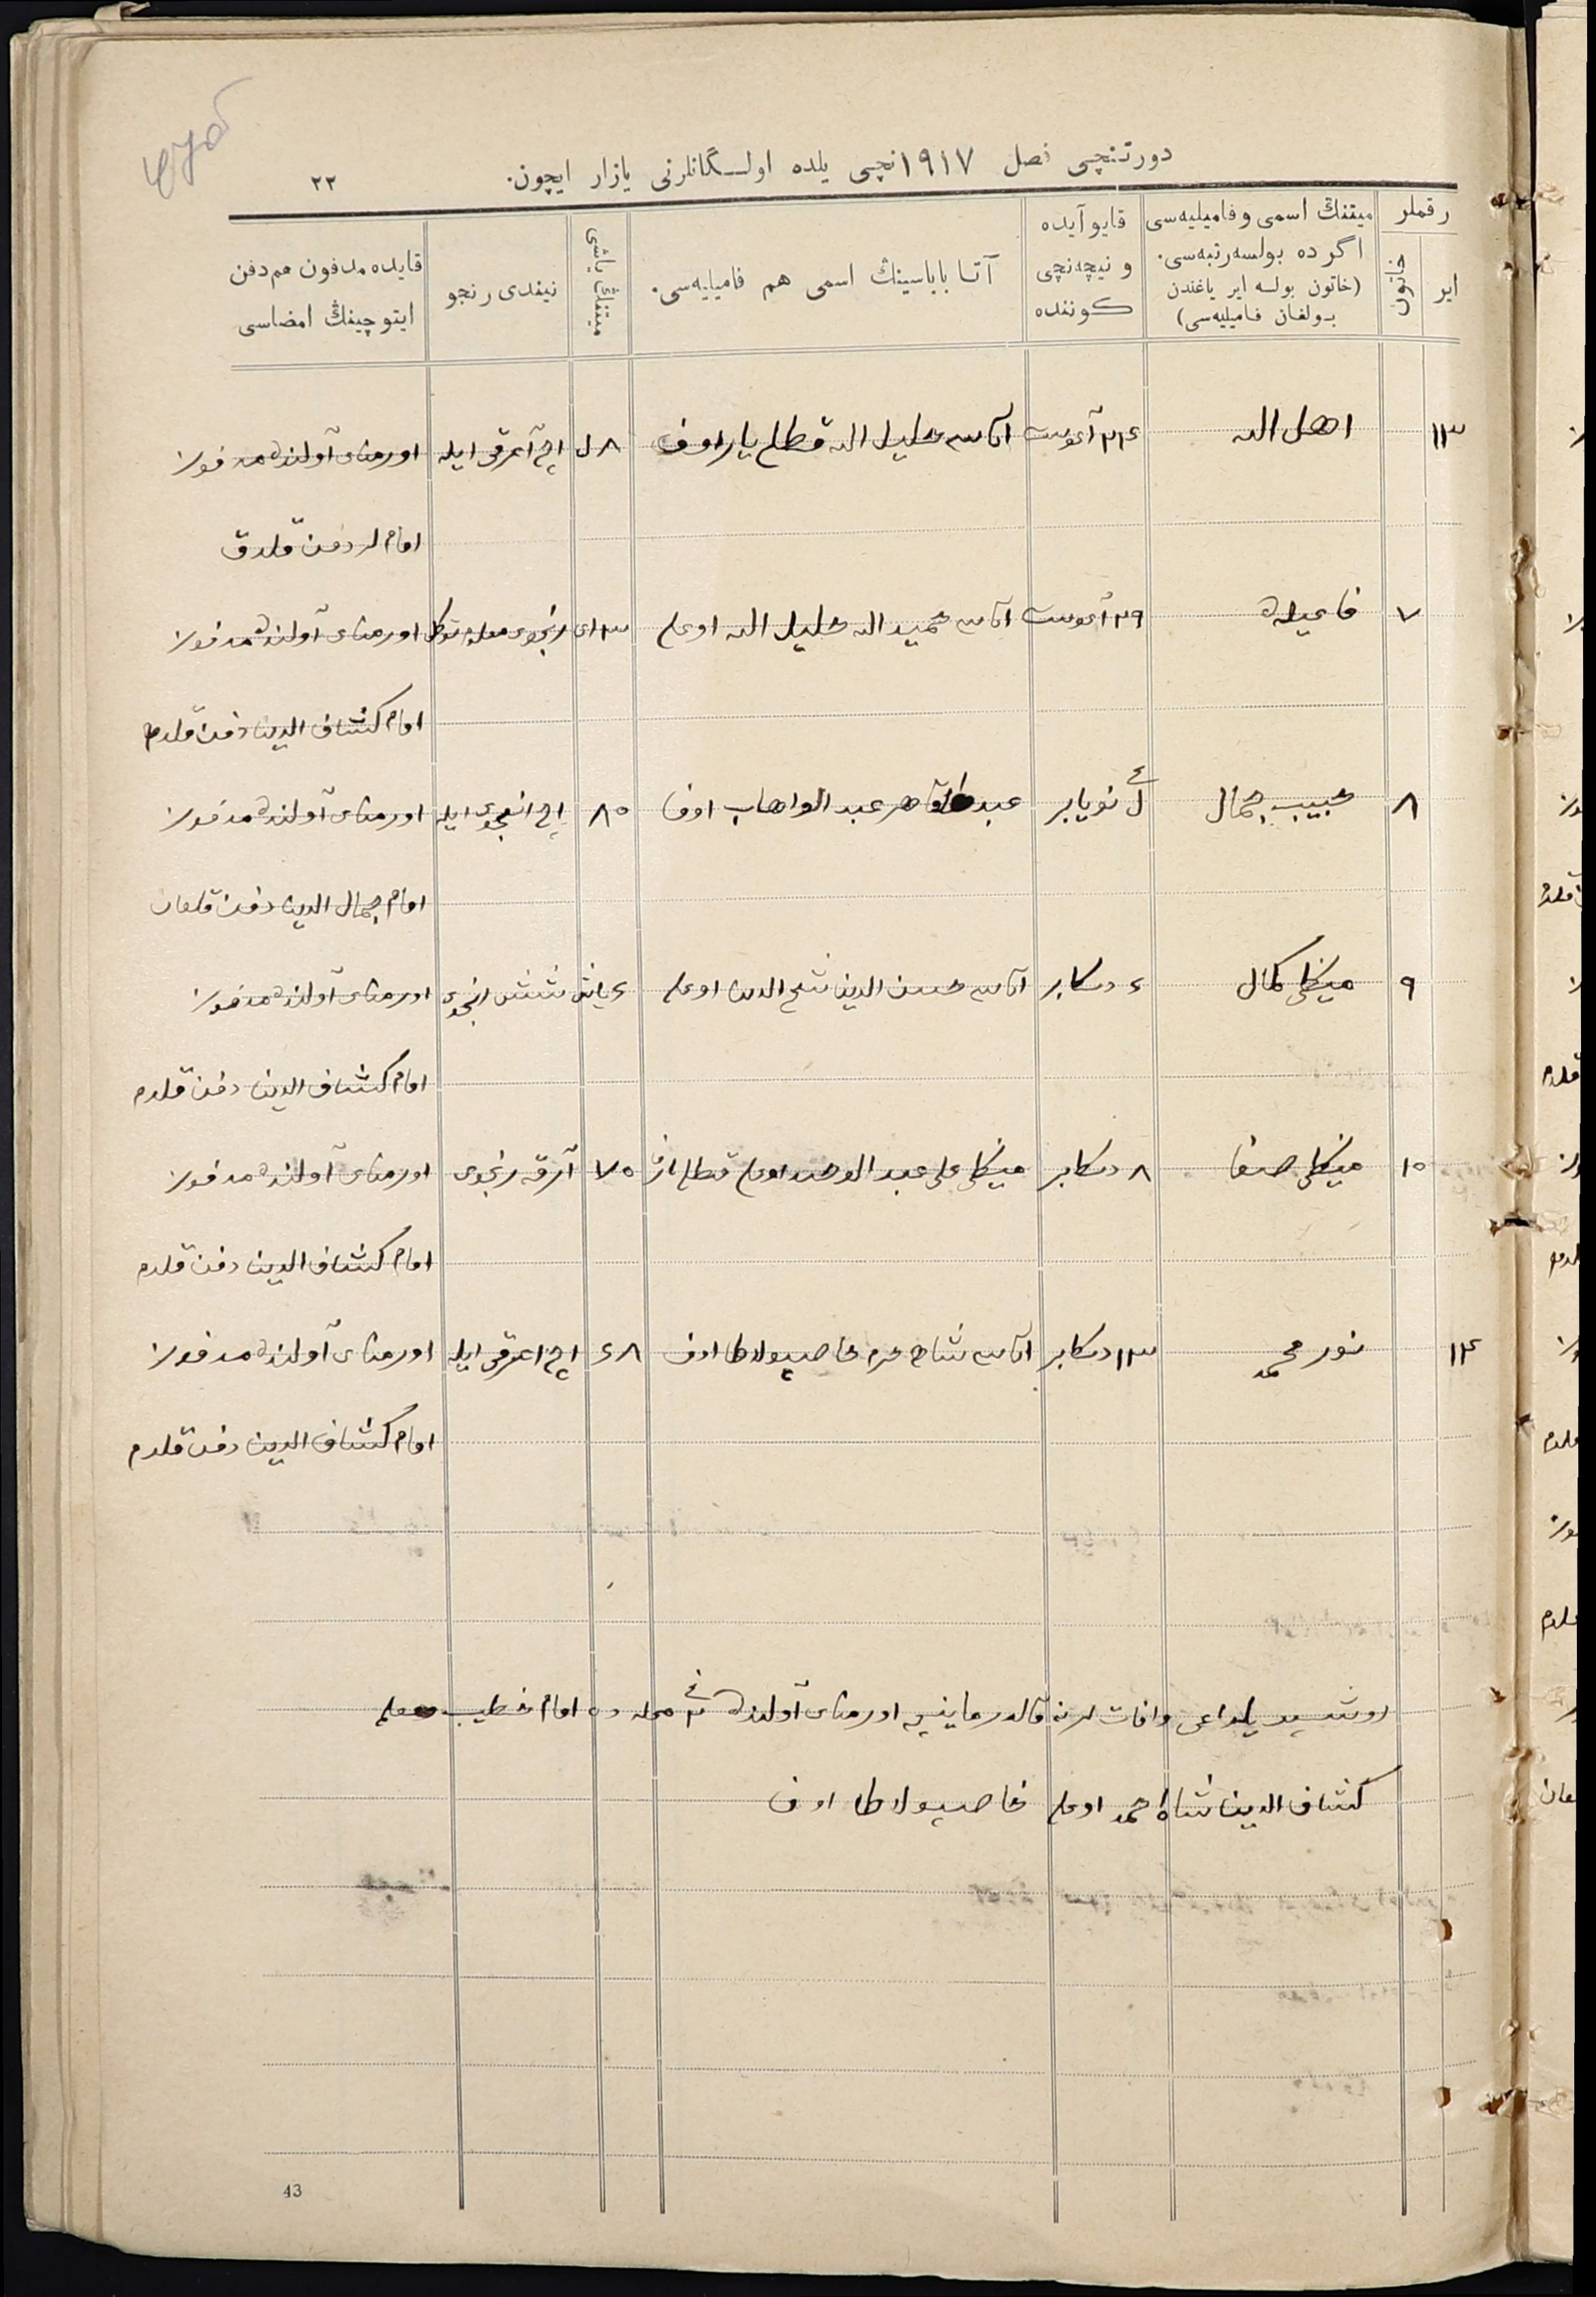 دورتنچی فصل ١٩١٧نچی یلده اولـــگانلرنی یازار ایچون.
٢٢
رقملر
ایر
خاتون
میتنڭ اسمی و فامیلیه‌سی اگر ده بولسه رتبه‌سی. (خاتون بولسه ایر یاغندن بولغان فامیلیه‌سی)
قایو آیده و نیچه‌نچی کوننده
آتا باباسینڭ اسمی هم فامیلیه‌سی.
میتنڭ یاشی
نیندی رنجو
قایده مدفون هم دفن ایتوچینڭ امضاسی
١٣ اهل الله ٢٤ آغوست آتاسی خلیل الله قطلم یاراوف اچ آغرقی ایله اورمنای آولنده مدفون
امام لر دفن قلدق
٧ ٢٩ آغوست آتاسی حمید الله خلیل الله اوغلی ١٣ ای اورمنای آولنده مدفون
امام کشاف الدین دفن قلدم
٨ حبیب جمال نویابر عبد الواهاب اوف ٨٥ اورمنای آولنده مدفون
امام جمال الدین دفن قلغان
٩ مینکلی کمال ٤ دکابر آتاسی حسن الدین اوغلی ٤ یاش اورمنای آولنده مدفون
امام کشاف الدین دفن قلدم
١٠ مینکلی صفا ٨ دکابر مینکلی علی عبد الوحید اوغلی ٧٥ آرقه رنجوی اورمنای آولنده مدفون
امام کشاف الدین دفن قلدم
١٤ نور محمد ١٣ دکابر آتاسی شاه خاصبولاط اوف ٤٨ اچ اغرقی ایله اورمنای آولنده مدفون
امام کشاف الدین دفن قلدم
اوشبو یلداغی وافات لرنی اورمنای آولنده ٢ نچی محله ده امام خطیب معلم
کشاف الدین شاه احمد اوغلی خاصبولاط اوف
43